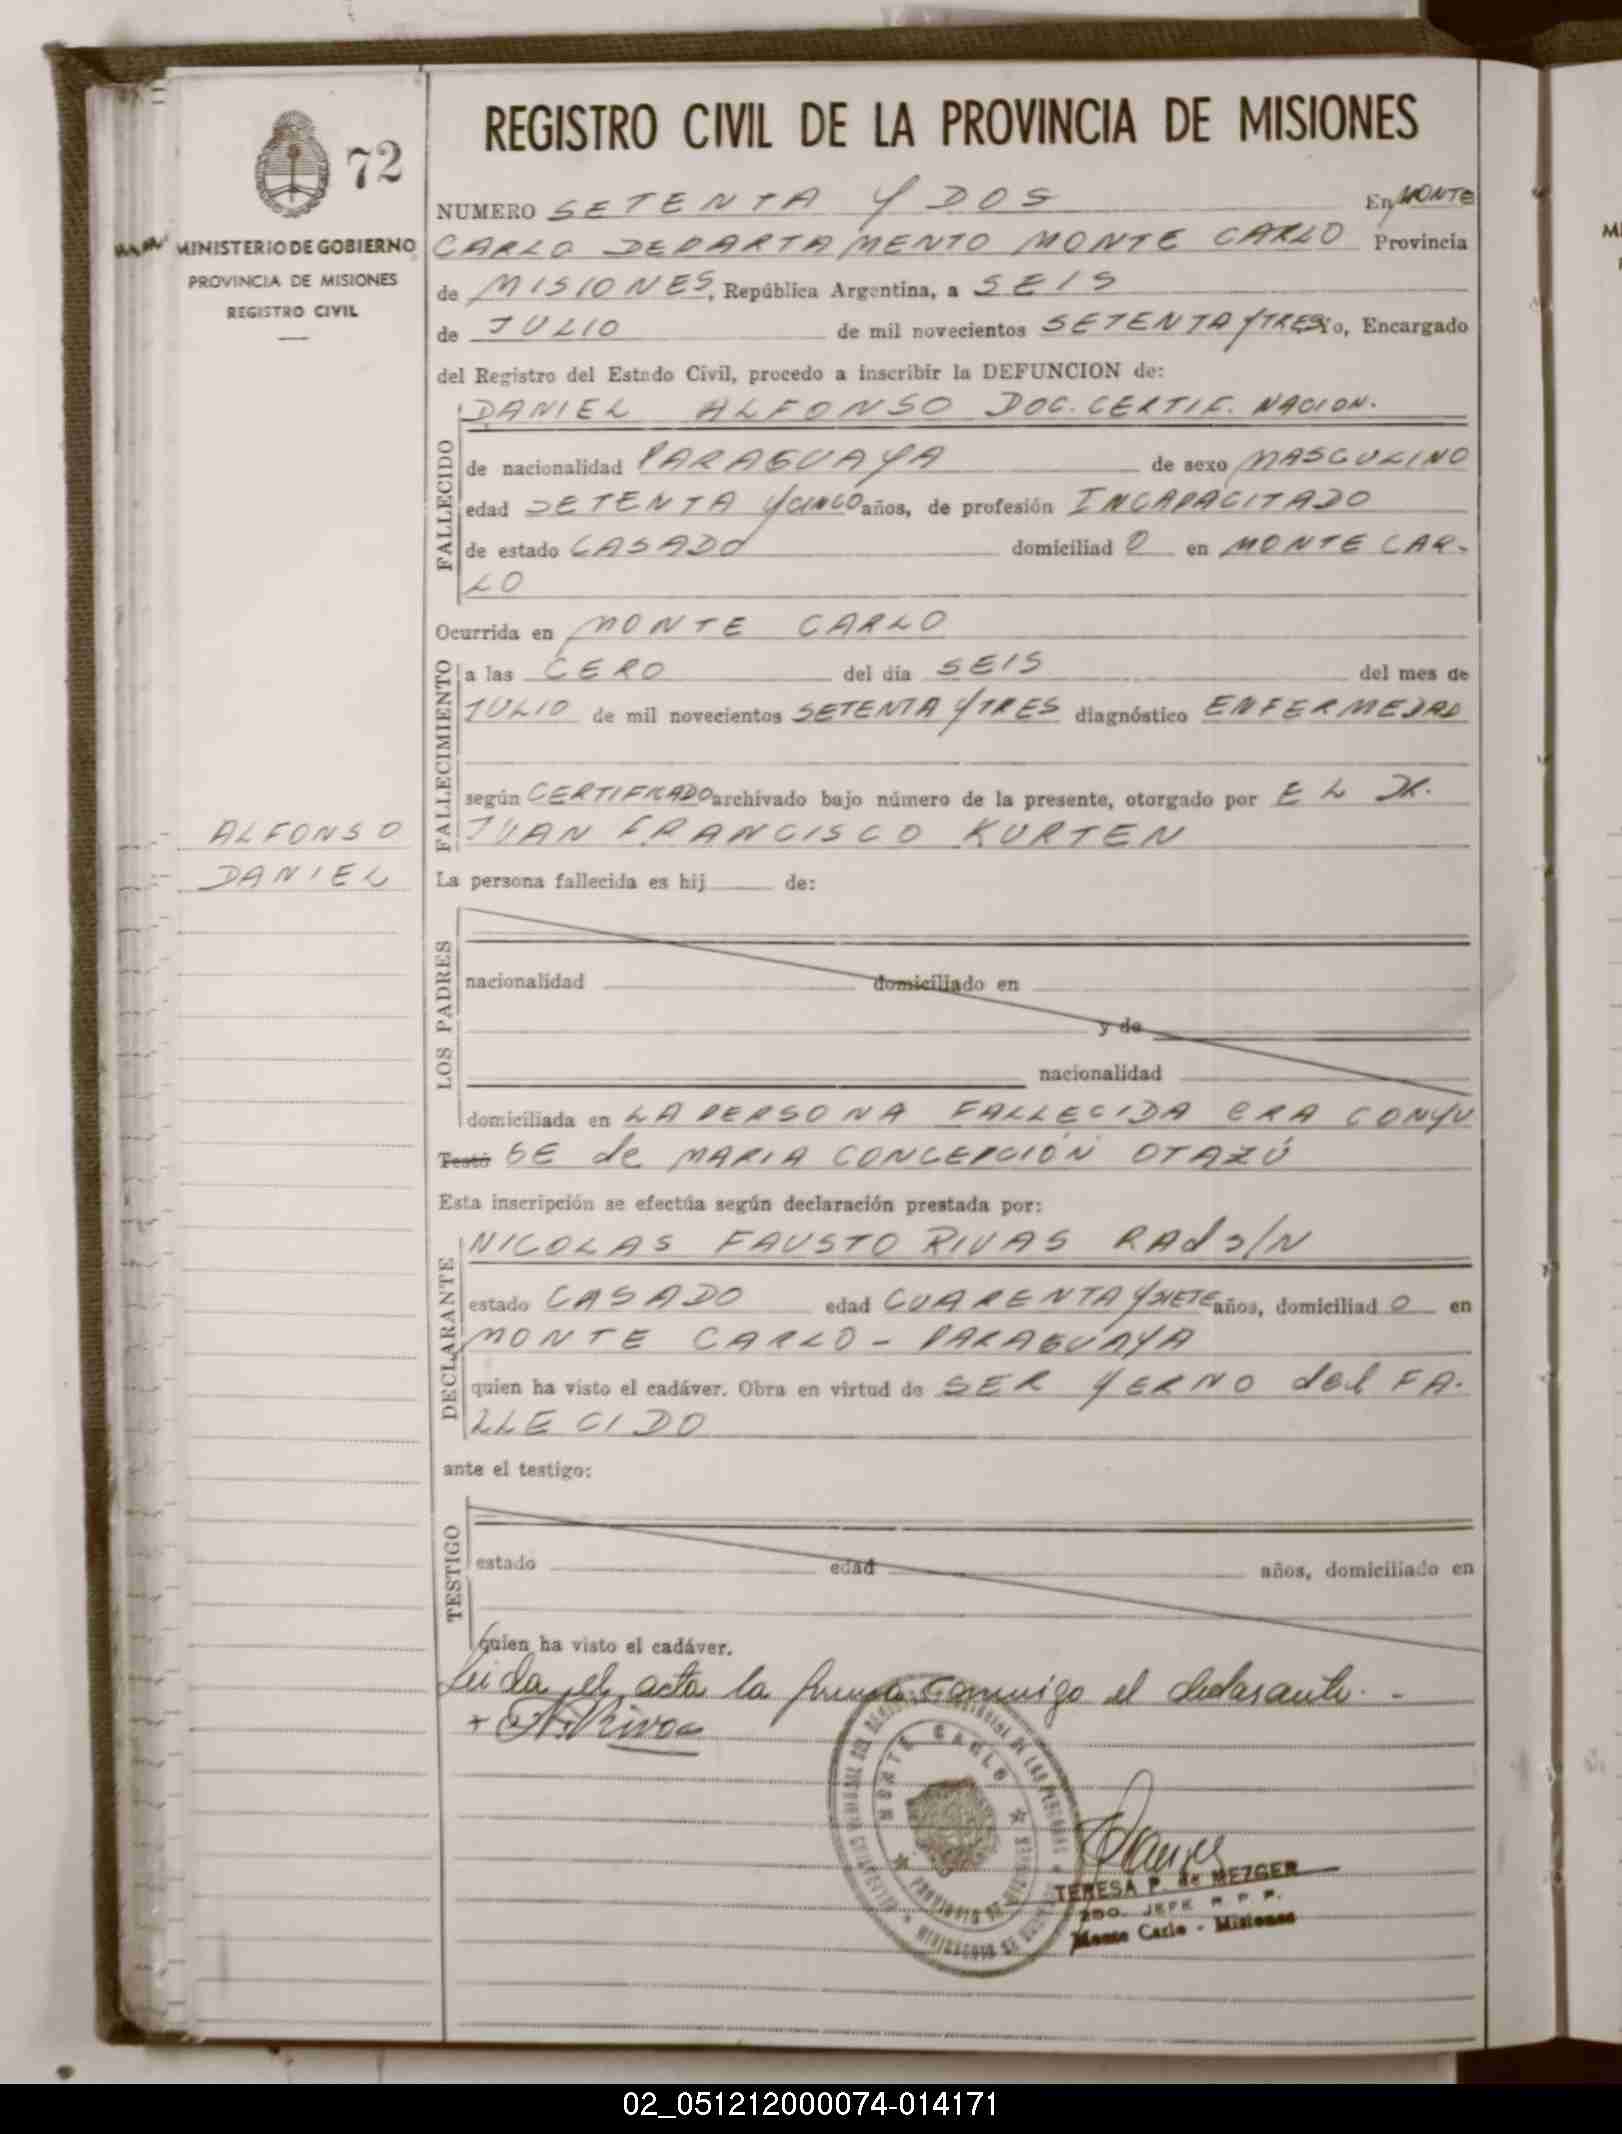 REGISTRO CIVIL DE LA PROVINCIA DE MISIONES
72
MINISTERIO DE GOBIERNO
PROVINCIA DE MISIONES
REGISTRO CIVIL
ALFONSO
DANIEL
NUMERO SETENTA Y DOS En MONTE
CARLO DEPARTAMENTO MONTE CARLO Provincia
de MISIONES, República Argentina, a SEIS
de JULIO de mil novecientos SETENTA Y TRES Yo, Encargado
del Registro del Estado Civil, procedo a inscribir la DEFUNCION de:
FALLECIDO
DANIEL ALFONSO DOC. CERTIF. NACION.
de nacionalidad PARAGUAYA de sexo MASCULINO
edad SETENTA Y CINCO años, de profesión INCAPACITADO
de estado CASADO domiciliad O en MONTE CAR-
LO
Ocurrida en MONTE CARLO
FALLECIMIENTO
a las CERO del día SEIS del mes de
JULIO de mil novecientos SETENTA Y TRES diagnóstico ENFERMEDAD
según CERTIFICADO archivado bajo número de la presente, otorgado por EL DR.
JUAN FRANCISCO KURTEN
La persona fallecida es hij de:
LOS PADRES
nacionalidad domiciliado en
y de
nacionalidad
domiciliada en LA PERSONA FALLECIDA ERA CONYU
Testó GE de MARIA CONCEPCIÓN OTAZÚ
Esta inscripción se efectúa según declaración prestada por:
DECLARANTE
NICOLAS FAUSTO RIVAS RAd S/N
estado CASADO edad CUARENTA Y SIETE años, domiciliad O en
MONTE CARLO - PARAGUAYA
quien ha visto el cadáver. Obra en virtud de SER YERNO del FA.
LLECIDO
ante el testigo:
TESTIGO
estado edad años, domiciliado en
quien ha visto el cadáver.
Leida el acta la firma conmigo el declarante. -
+ Rivas
MONTE CARLO
PROVINCIA DE MISIONES
TERESA P. de MEZGER
2DO. JEFE R. P. P.
Monte Carlo - Misiones
02_051212000074-014171